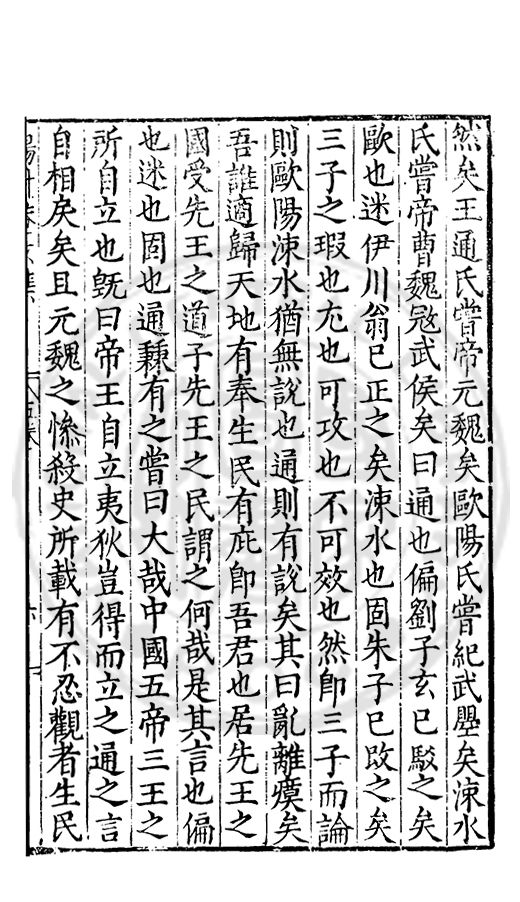 然矣王通氏嘗帝元魏矣歐陽氏嘗紀武曌矣涑水
氏嘗帝曹魏冦武侯矣曰通也偏劉子玄已駁之矣
歐也迷伊川翁已正之矣涑水也固朱子已改之矣
三子之瑕也尤也可攻也不可效也然卽三子而論
則歐陽涑水猶無說也通則有說矣其曰亂離瘼矣
吾誰適歸天地有奉生民有庇卽吾君也居先王之
國受先王之道子先王之民謂之何哉是其言也偏
也迷也固也通蒹有之嘗曰大哉中國五帝三王之
所自立也旣曰帝王自立夷狄豈得而立之通之言
自相戾矣且元魏之慘殺史所載有不忍觀者生民